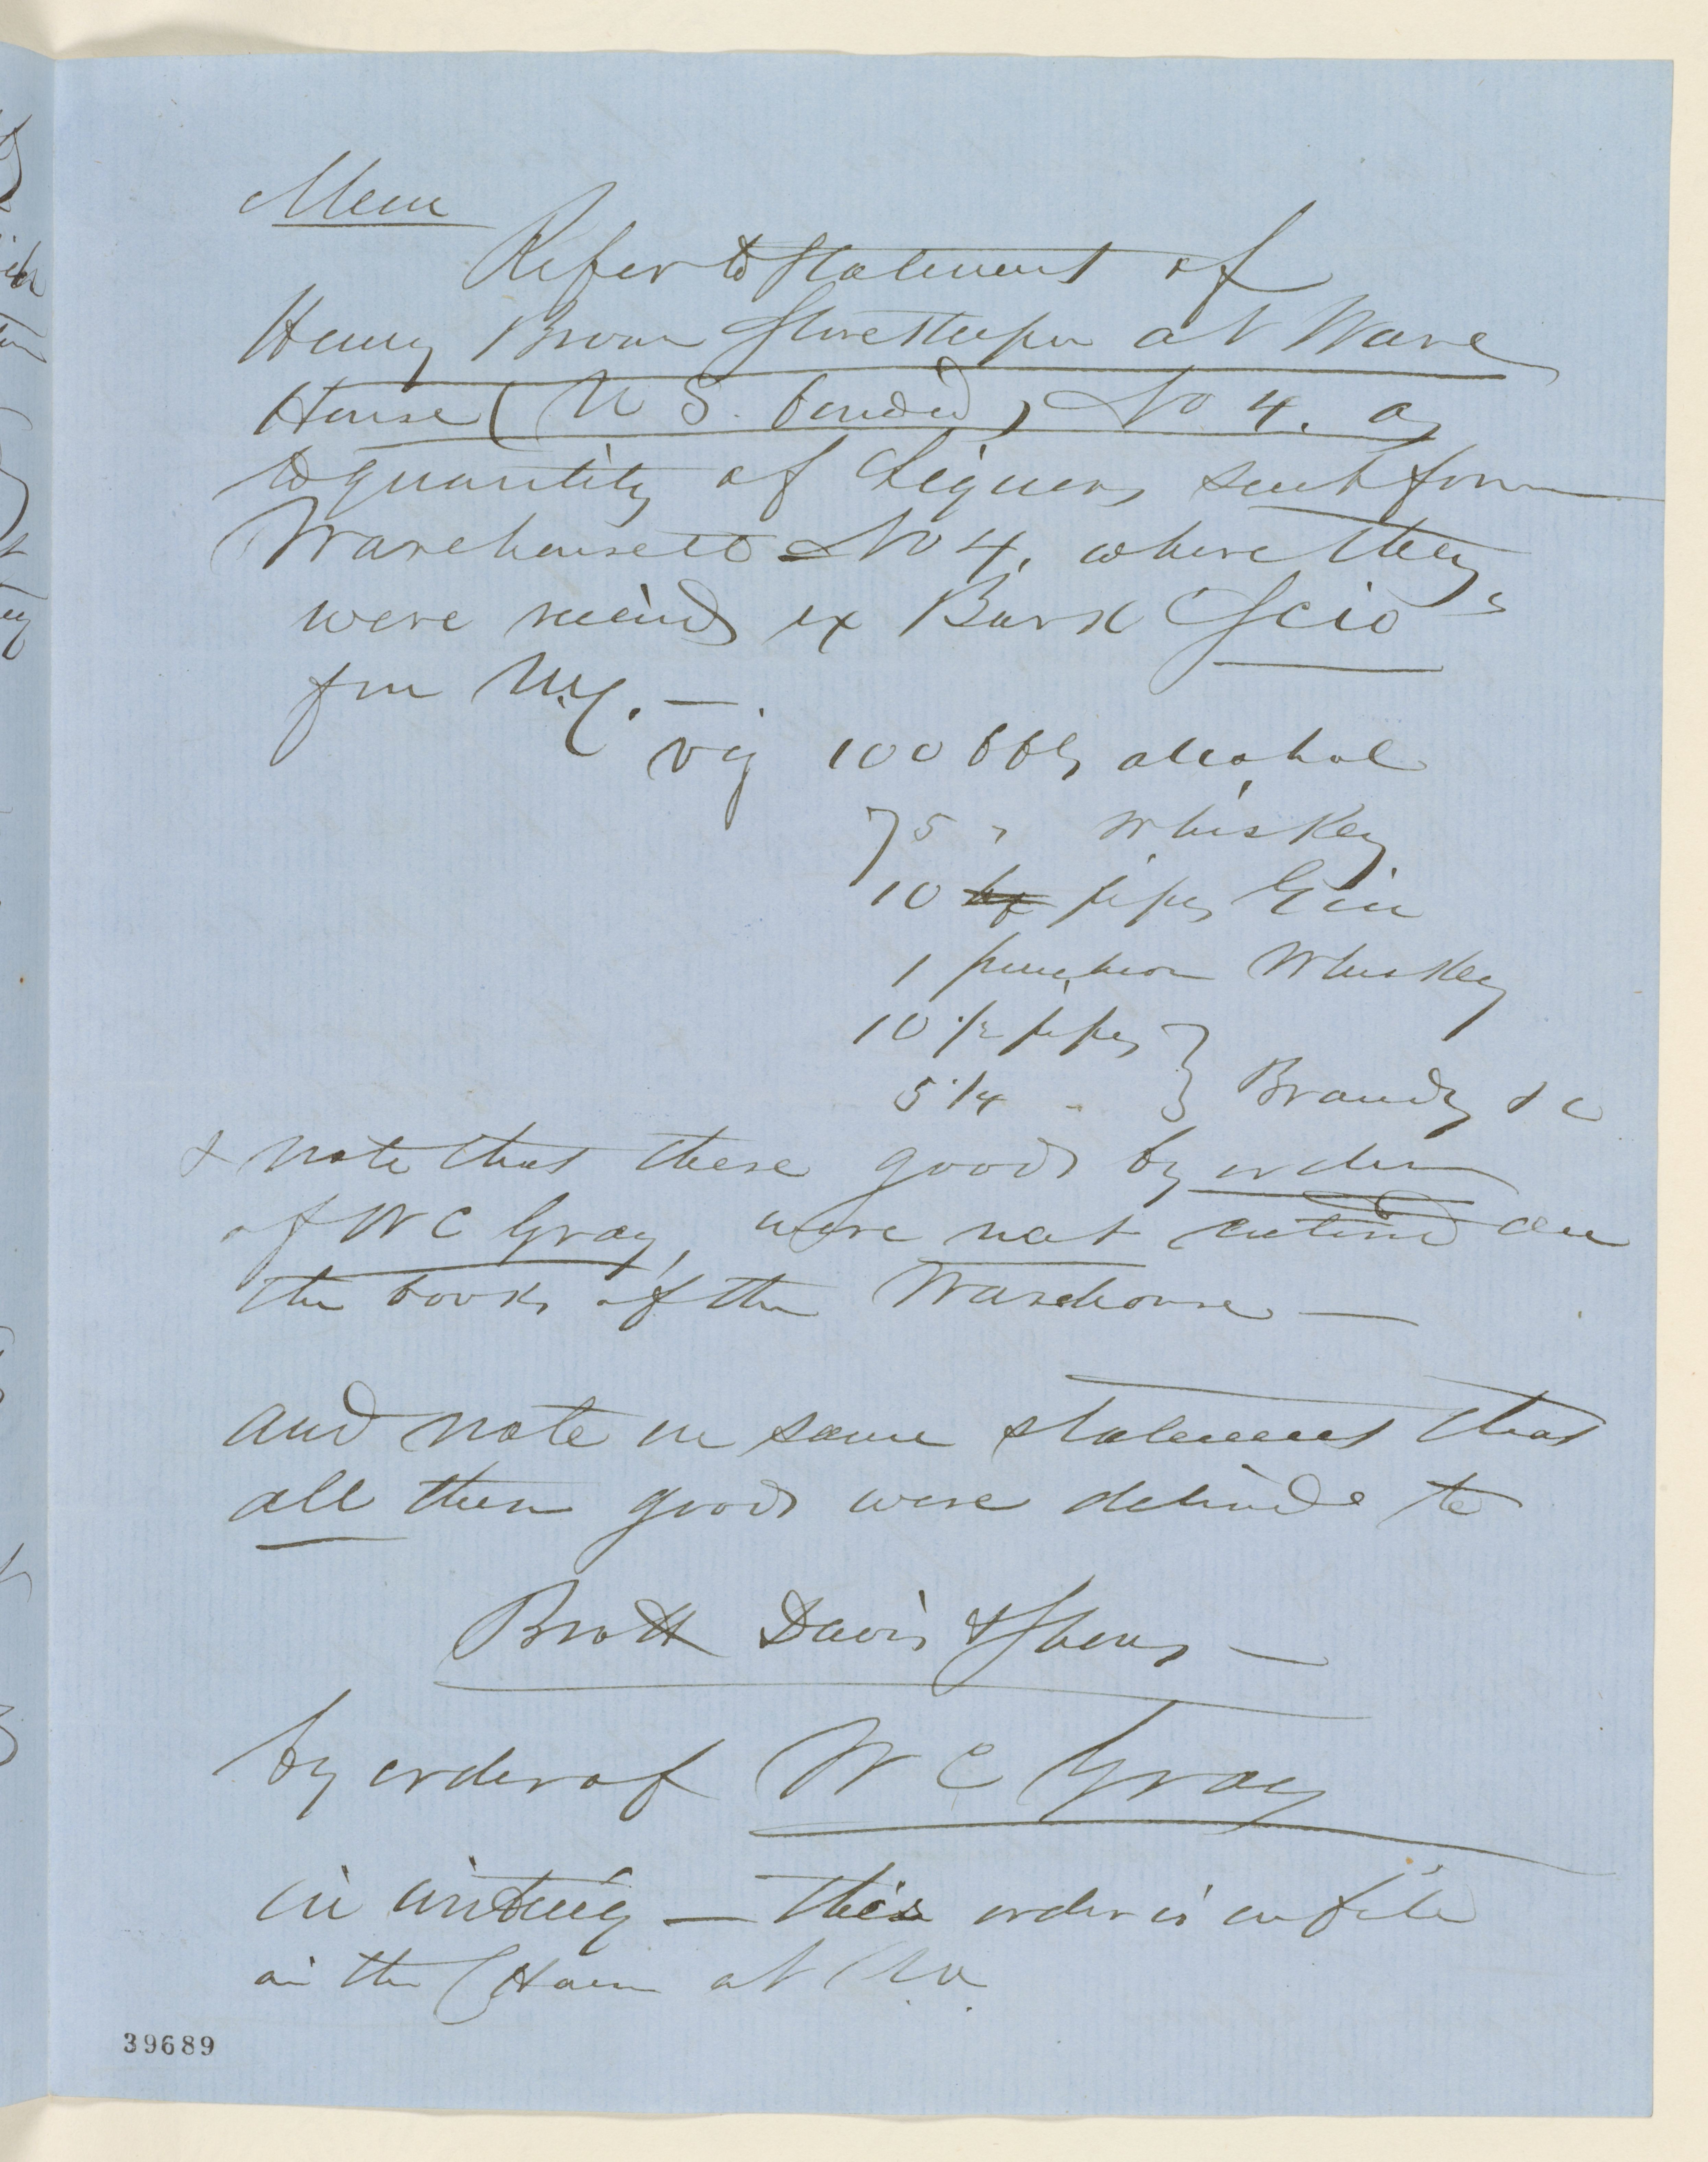 Mem
Refer to statement of
Henry Brown Storekeeper at Ware
House (U S. bonded) No 4. as
to quantity of Liquors sent from
Warehouse to No 4, where they
were received ex Bark Scio
from N.Y. —
viz 100 bbls alcohol
75 " Whiskey
10 pipes Gin
1 puncheon Whiskey
10 1/2 pipes
5 1/4 " } Brandy &c
& note that these goods by order
of W C Gray, were not entered on
the books of the Warehouse —
and note in same statement that
all these goods were delivered to
Brott Davis & Shons —
by order of W C Gray
in writing — this order is on file
in the at N.O.
39689